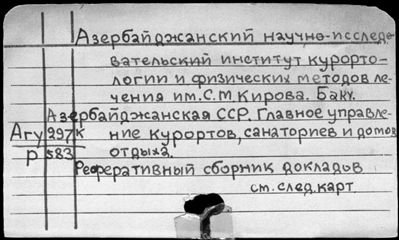 Азербайджанский научно-исследо-
вательский институт курорто-
логии и физических методов ле-
чения им. С.М. Кирова. Баку.
Азербайджанская ССР. Главное управле-
Агу 297к ние курортов, санаториев и домов
р 583 отдыха.
Реферативный сборник докладов
см. след. карт